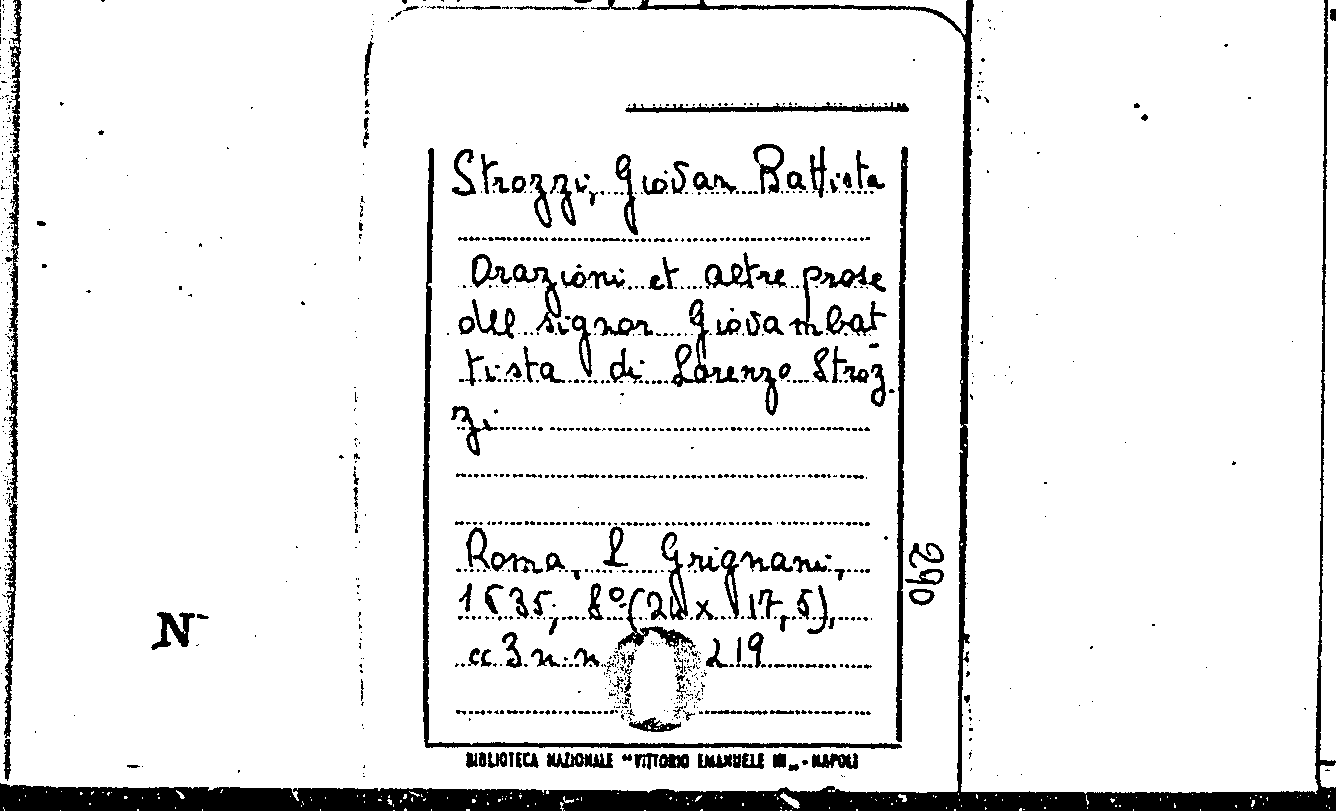 Strozzi, Giovan Battista
Orazioni et altre prose
del signor Giovambat
tista di Lorenzo Stroz
zi
Roma, L Grignani,
1635, 8° (24 x 17,5),
cc 3 n. n. 219
290
N
BIBLIOTECA NAZIONALE "VITTORIO EMANUELE III„ - NAPOLI